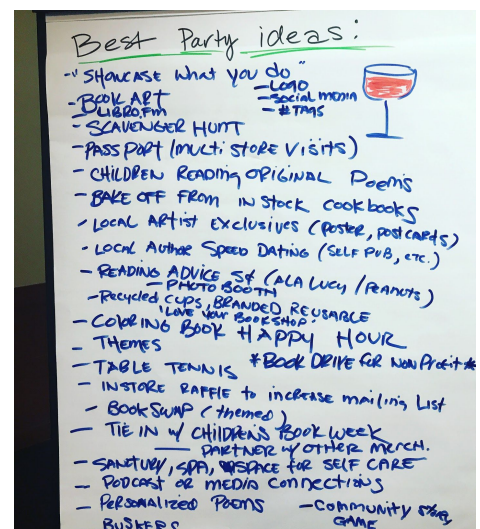 Best Party ideas:
- "SHOWCASE what you do"
- LOGO
- BOOK ART
- SOCIAL MEDIA
- LIBRO.FM
- # TAGS
- SCAVENGER HUNT
- PASSPORT (MULTI STORE VISITS)
- CHILDREN READING ORIGINAL Poems
- BAKE OFF FROM IN STOCK COOKBOOKS
- LOCAL ARTIST EXCLUSIVES (POSTER, POSTCARDS)
- LOCAL AUTHOR SPEED DATING (SELF PUB, ETC.)
- READING ADVICE 5¢ (ALA LUCY / PEANUTS)
- PHOTO BOOTH
- Recycled CUPS, BRANDED REUSABLE
"LOVE YOUR BOOKSHOP"
- COLORING BOOK HAPPY HOUR
- THEMES
* BOOK DRIVE for NON Profit *
- TABLE TENNIS
- INSTORE RAFFLE to INCREASE mailing List
- BOOK SWAP (themed)
- TIE IN w/ CHILDREN'S BOOK WEEK
- PARTNER w/ OTHER MERCH.
- SPA, SPACE for SELF CARE
- PODCAST or MEDIA CONNECTIONS
- PERSONALIZED POEMS
- Community
GAME
BUSKERS